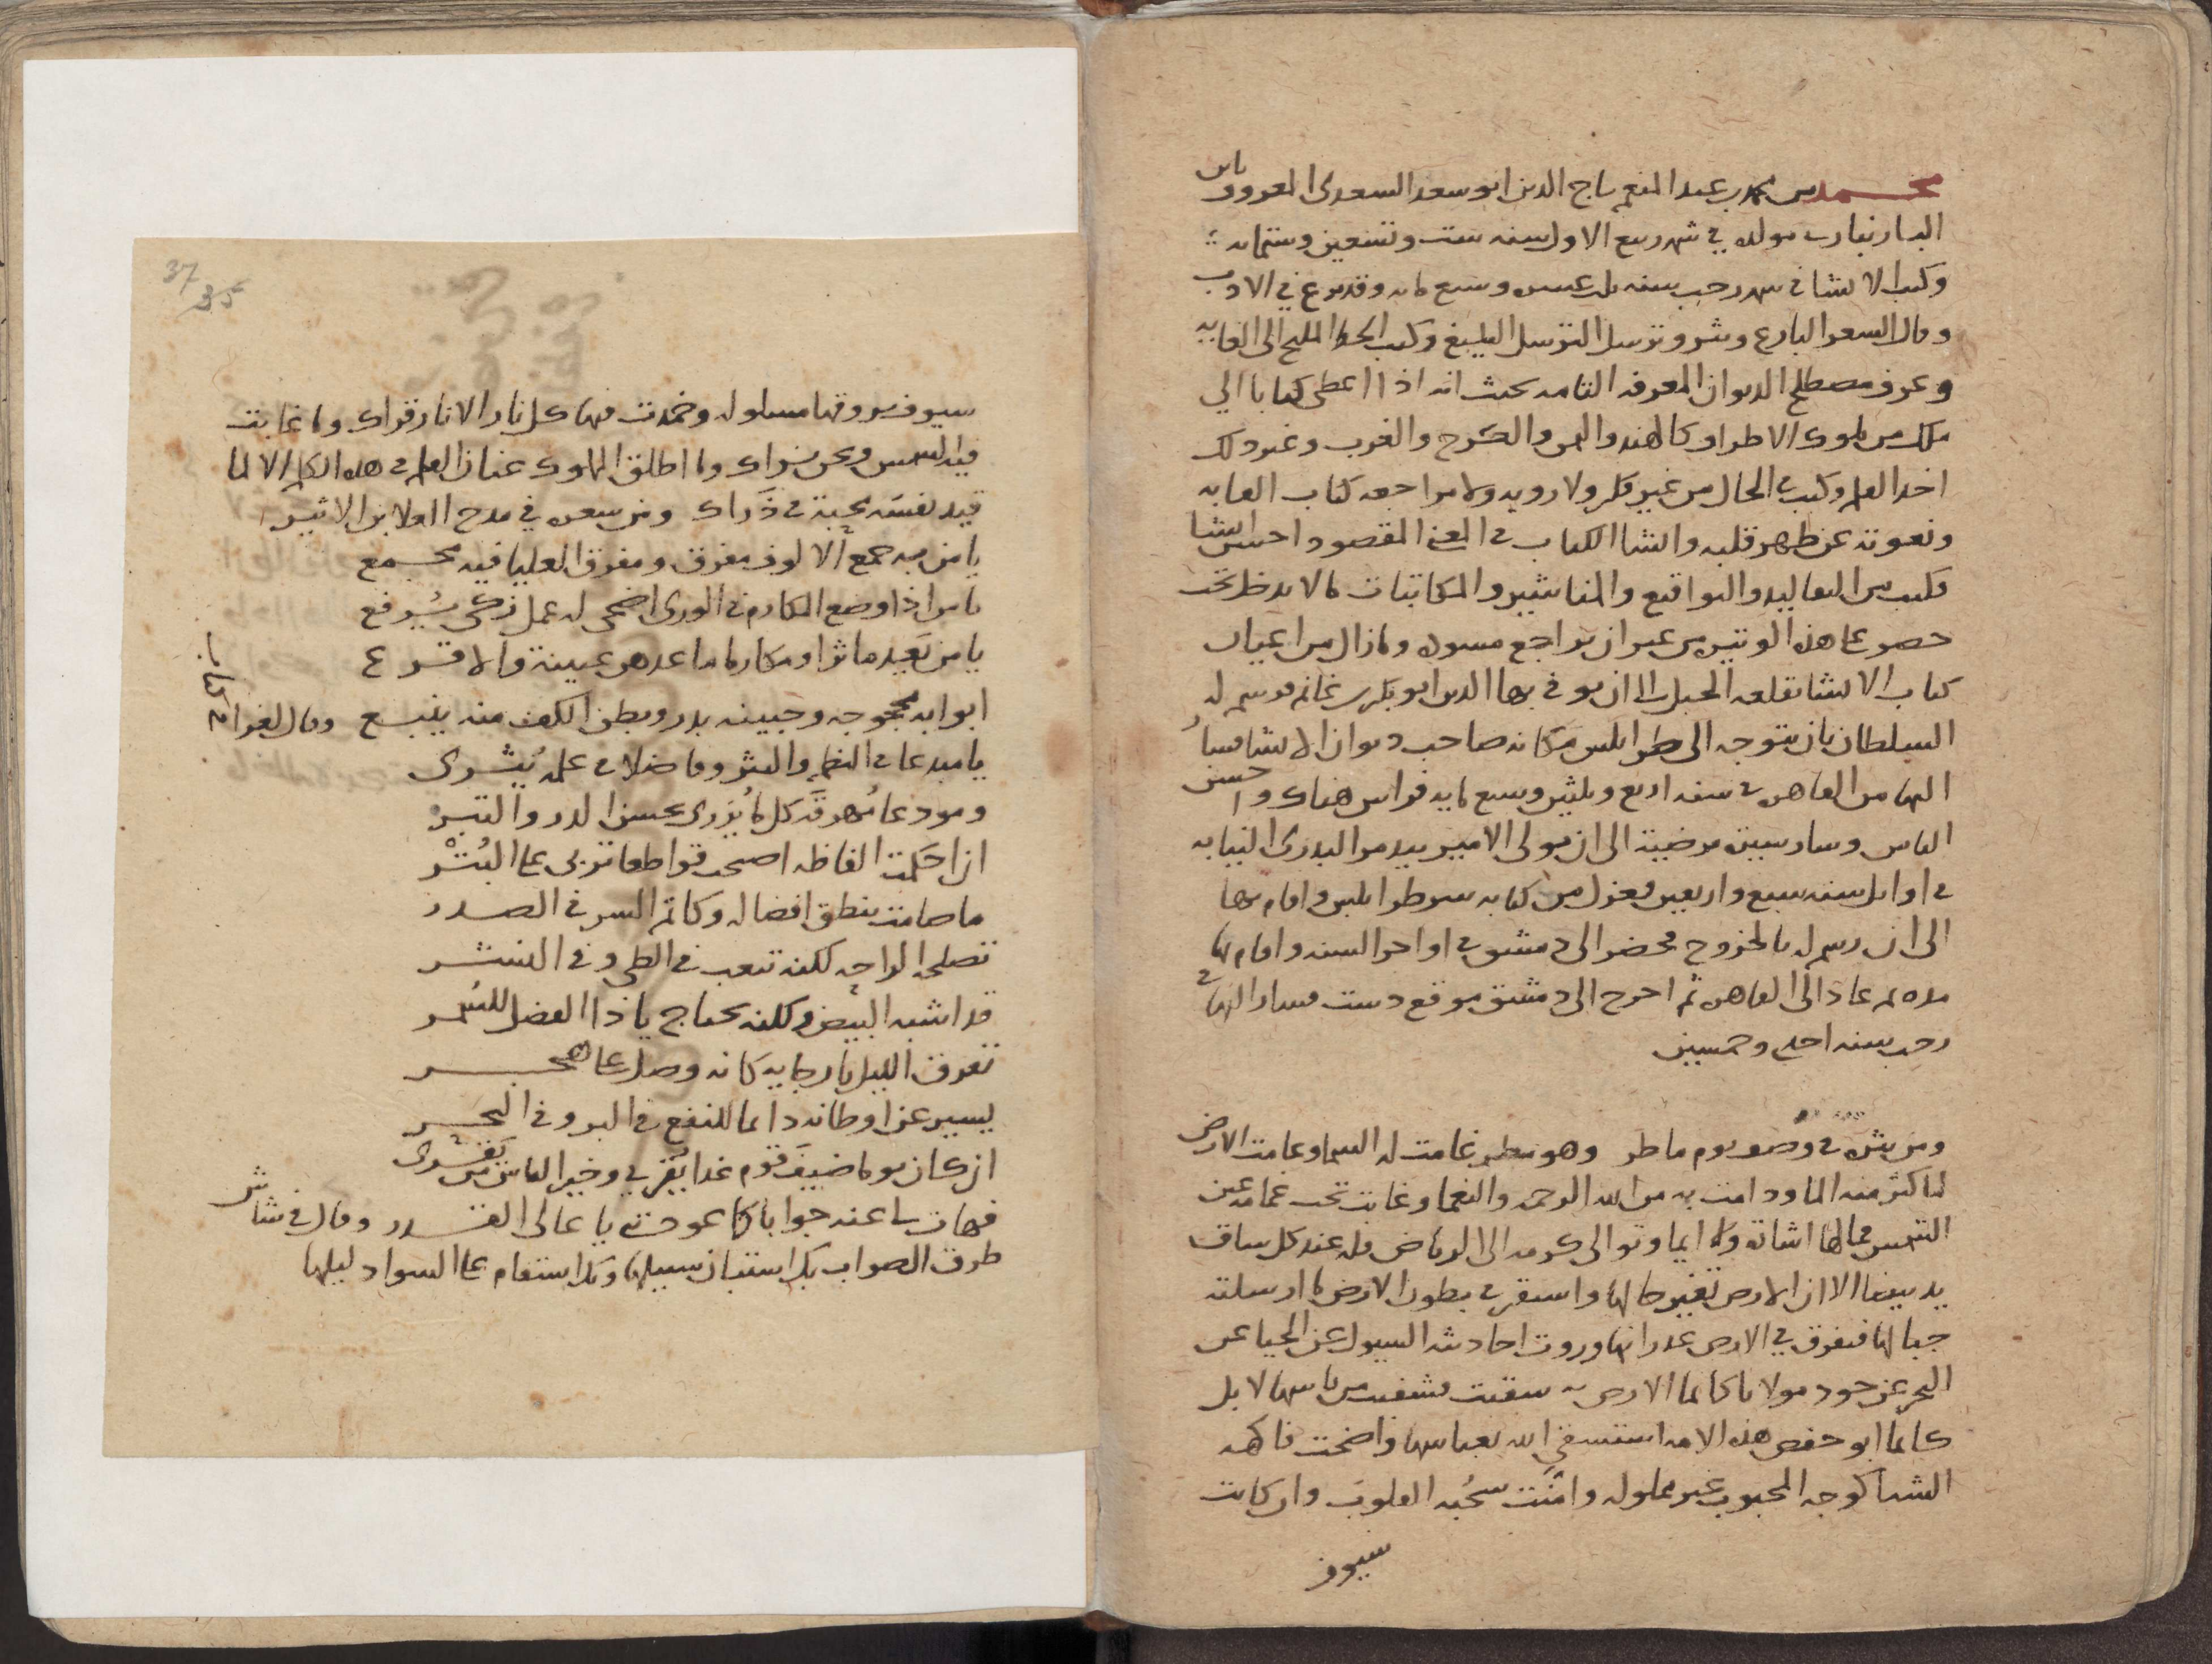 محمد بن محمد بن عبد المنعم تاج الدين ابو سعد السعدي المعروف بابن
البارنباري مولده في شهر ربيع الاول سنه ست وتسعين وستمايه
وكتب الانشا في شهر رجب سنه ثلث عشره وسبع مايه وقد برع في الادب
وقال الشعر البارع ونثر وترسل الترسل البليغ وكتب الخط المليح الى الغايه
وعرف مصطلح الديوان المعرفه التامه بحيث انه اذا اعطي كتابا الي
ملك من ملوك الاطراف كالهند واليمن والكرج والغرب وغير ذلك
اخذ القلم وكتب في الحال من غير فكر ولا رويه ولا مراجعه كتاب القابه
ونعوته عن ظهر قلبه وانشا الكتاب في المعنى المقصود احسن انشا
فكتب من التقاليد والتواقيع والمناشير والمكاتبات ما لا يدخل تحت
حصر على هذه الوتيره من غير ان يراجع مسوده وما زال من اعيان
كتاب الانشا بقلعه الجبل الى ان توفي بها الدين ابو بكر بن غانم فرسم له
السلطان بان يتوجه الى طرابلس مكانه صاحب ديوان الانشا
اليها من القاهره في سنه اربع وثلثين وسبع مايه فراس هناك واحسن
الناس وسار سيره مرضيه الى ان تولى الامير بيدمر البدري النيابه
في اوايل سنه سبع واربعين فعزل من كتابه سر طرابلس واقام بها
الى ان رسم له بالخروج فحضر الى دمشق في اواخر السنه واقام بها
مده ثم عاد الى القاهره ثم اخرج الى دمشق موقع دست فسار اليها في
رجب سنه احدي وخمسين
ومن نثره في وصف يوم ماطر وهو مطر غامت له السما وعامت الارض
لما كثر منه الما ودامت به من الله الرحمه والنعما وغابت تحت غمامه عين
الشمس فما لها اشاره ولا ايما وتوالى كرمه الى الرياض فله عند كل ساق
يد بيضا الا ان الارض تغير حالها واستقر في بطون الارض ما ارسلته
جبالها فتفرق في الارض غدرانها وروت احاديث السيول عن الحيا عن
البحر عن جود مولانا كانما الارض به سقيت فشفيت من باسها لا بل
كانما ابو حفص هذه الامه استسقى الله بعباسها واضحت فاكهه
الشتا كوجه المحبوب غير مملوله وامنت سحبه القلوب وان كانت
سيوف
37
35
سيوف بروقها مسلوله وخمدت فيها كل نار الا نار قراك وما غابت
فيه الشمس ونحن نراك وما اطلق المملوك عنان القلم في هذه الكلم الا لما
قيد نفسه محبة في ذراك ومن شعره في مدح العلا بن الاثير
يا من به جمع الالوف مفرق ومفرق العليا فيه مجمع
يا من اذا وضع المكارم في الورى اضحى له عمل زكي يرفع
يا من تعيد ماثرا ومكارما ما عدهن عيينة والاقرع
ابوابه محجوجه وجبينه بدر وبطن الكف منه ينبع وقال لغزا في كتاب
يا مبدعا في النظم والنثر وفاضلا في علمه يثري
ومودعا مهرقه كل ما يزري بحسن الدر والتبر
ان احكمت الفاظه اصبحت قواطعا تربي على البتر
ما صامت ينطق افضاله وكاتم السر في الصدر
تصلحه الراحه لكنه تتعب في الطي وفي النشر
قد اشبه البيض ولكنه يحتاج يا ذا الفضل للسمر
تفرق الليل بارجايه كانه وصل على هجر
يسير عن اوطانه دايما للنفع في البر وفي البحر
ان كان يوما ضيف قوم غدا يقري وخير الناس من يقري
فهات لي عنه جوابا كما عودتني يا عالي القدر وقال في شاش
طرق الصواب بك استبان سبيلها وبك استقام على السواد ليلها